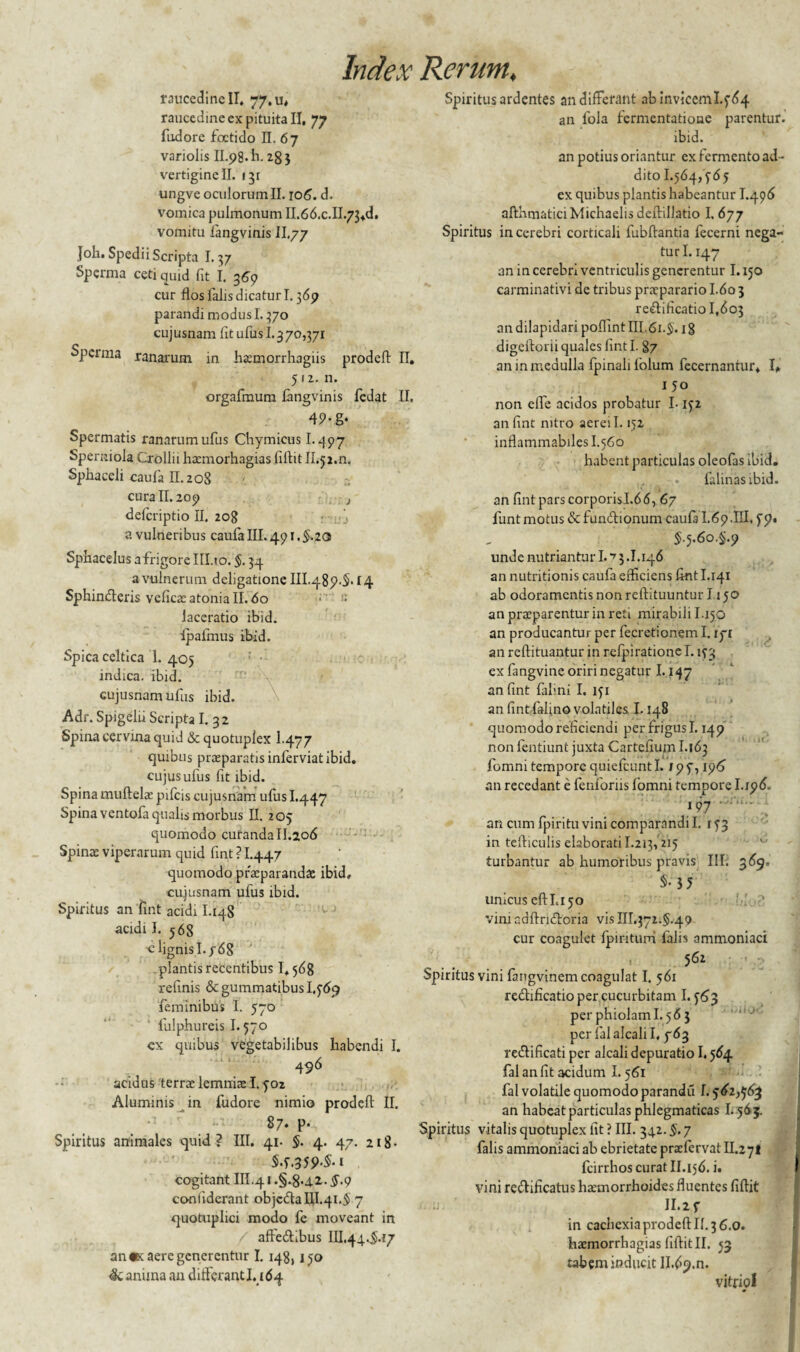 Index Rerum.
raucedine II. 77. u.
raucedine ex pituita II. 77
ſudore fœtido II. 67
variolis II.98.h.283
vertigine II. 131
ungve oculorum II. 106. d.
vomica pulmonum II.66.c.II.73.d.
vomitu ſangvinis II.77
Joh. Spedii Scripta I. 37
Sperma ceti quid ſit I. 369
cur flos ſalis dicatur I. 369
parandi modus I. 370
cujusnam ſit uſus I. 370,371
Sperma ranarum in hæmorrhagiis prodeſt II.
512. n.
orgaſmum ſangvinis ſedat II.
49. g.
Spermatis ranarum uſus Chymicus I. 497
Sperniola Crollii hæmorhagias ſiſtit II.52.n.
Sphaceli cauſa II. 208
cura II. 209
deſcriptio II. 208
a vulneribus cauſa III. 491. §.20
Sphacelus a frigore III.10. §. 34
a vulnerum deligatione III.489.§.14
Sphincteris veſicæ atonia II. 60
laceratio ibid.
ſpaſmus ibid.
Spica celtica I. 405
indica. ibid.
cujusnam uſus ibid.
Adr. Spigelii Scripta I. 32
Spina cervina quid & quotuplex I.477
quibus præparatis inſerviat ibid.
cujus uſus ſit ibid.
Spina muſtelæ piſcis cujusnam uſus I.447
Spina ventoſa qualis morbus II. 205
quomodo curanda II.206
Spinæ viperarum quid ſint? I.447
quomodo præparandæ ibid.
cujusnam uſus ibid.
Spiritus an ſint acidi I.148
acidi I. 568
e lignis I. 568
plantis recentibus I. 568
reſinis & gummatibus I.569
ſeminibus I. 570
ſulphureis I. 570
ex quibus vegetabilibus habendi I.
496
acidus terræ lemniæ I. 502
Aluminis in ſudore nimio prodeſt II.
87. p.
Spiritus animales quid? III. 41. §. 4. 47. 218.
§.5.359.§.1
cogitant III.41.§.8.42.§.9
conſiderant objecta III.41.§ 7
quotuplici modo ſe moveant in
affectibus III.44.§.17
an ex aere generentur I. 148, 150
& anima an differant I. 164
Spiritus ardentes an differant ab invicem I.564
an ſola fermentatione parentur.
ibid.
an potius oriantur ex fermento ad-
dito I.564, 565
ex quibus plantis habeantur I.496
aſthmatici Michaelis deſtillatio I. 677
Spiritus in cerebri corticali ſubſtantia ſecerni nega-
tur I. 147
an in cerebri ventriculis generentur I.150
carminativi de tribus præparario I.603
rectificatio I.603
an dilapidari poſſint III.61.§.18
digeſtorii quales ſint I. 87
an in medulla ſpinali ſolum ſecernantur. I.
150
non eſſe acidos probatur I. 152
an ſint nitro aerei I. 152
inflammabiles I.560
habent particulas oleoſas ibid.
ſalinas ibid.
an ſint pars corporis I.66, 67
ſunt motus & functionum cauſa I.69.III. 59.
§.5.60.§.9
unde nutriantur I. 73.I.146
an nutritionis cauſa efficiens ſint I.141
ab odoramentis non reſtituuntur I 150
an præparentur in reti mirabili I.150
an producantur per ſecretionem I. 151
an reſtituantur in reſpiratione I. 153
ex ſangvine oriri negatur I. 147
an ſint ſalini I. 151
an ſint ſalino volatiles I. 148
quomodo reficiendi per frigus I. 149
non ſentiunt juxta Carteſium I.163
ſomni tempore quieſcunt I. 195, 196
an recedant è ſenſoriis ſomni tempore I.196.
197
an cum ſpiritu vini comparandi I. 153
in teſticulis elaborati I.213, 215
turbantur ab humoribus pravis III. 369.
§. 35
unicus eſt I. 150
vini adſtrictoria vis III.372.§.49
cur coagulet ſpiritum ſalis ammoniaci
562
Spiritus vini ſangvinem coagulat I. 561
rectificatio per cucurbitam I. 563
per phiolam I. 563
per ſal alcali I. 563
rectificati per alcali depuratio I. 564
ſal an ſit acidum I. 561
ſal volatile quomodo parandū I. 562,563
an habeat particulas phlegmaticas I.563.
Spiritus vitalis quotuplex ſit? III. 342. §. 7
ſalis ammoniaci ab ebrietate præſervat II.271
ſcirrhos curat II.156. i.
vini rectificatus hæmorrhoides fluentes ſiſtit
II.25
in cachexia prodeſt II. 36.o.
hæmorrhagias ſiſtit II. 53
tabem inducit II.69.n.
vitriol